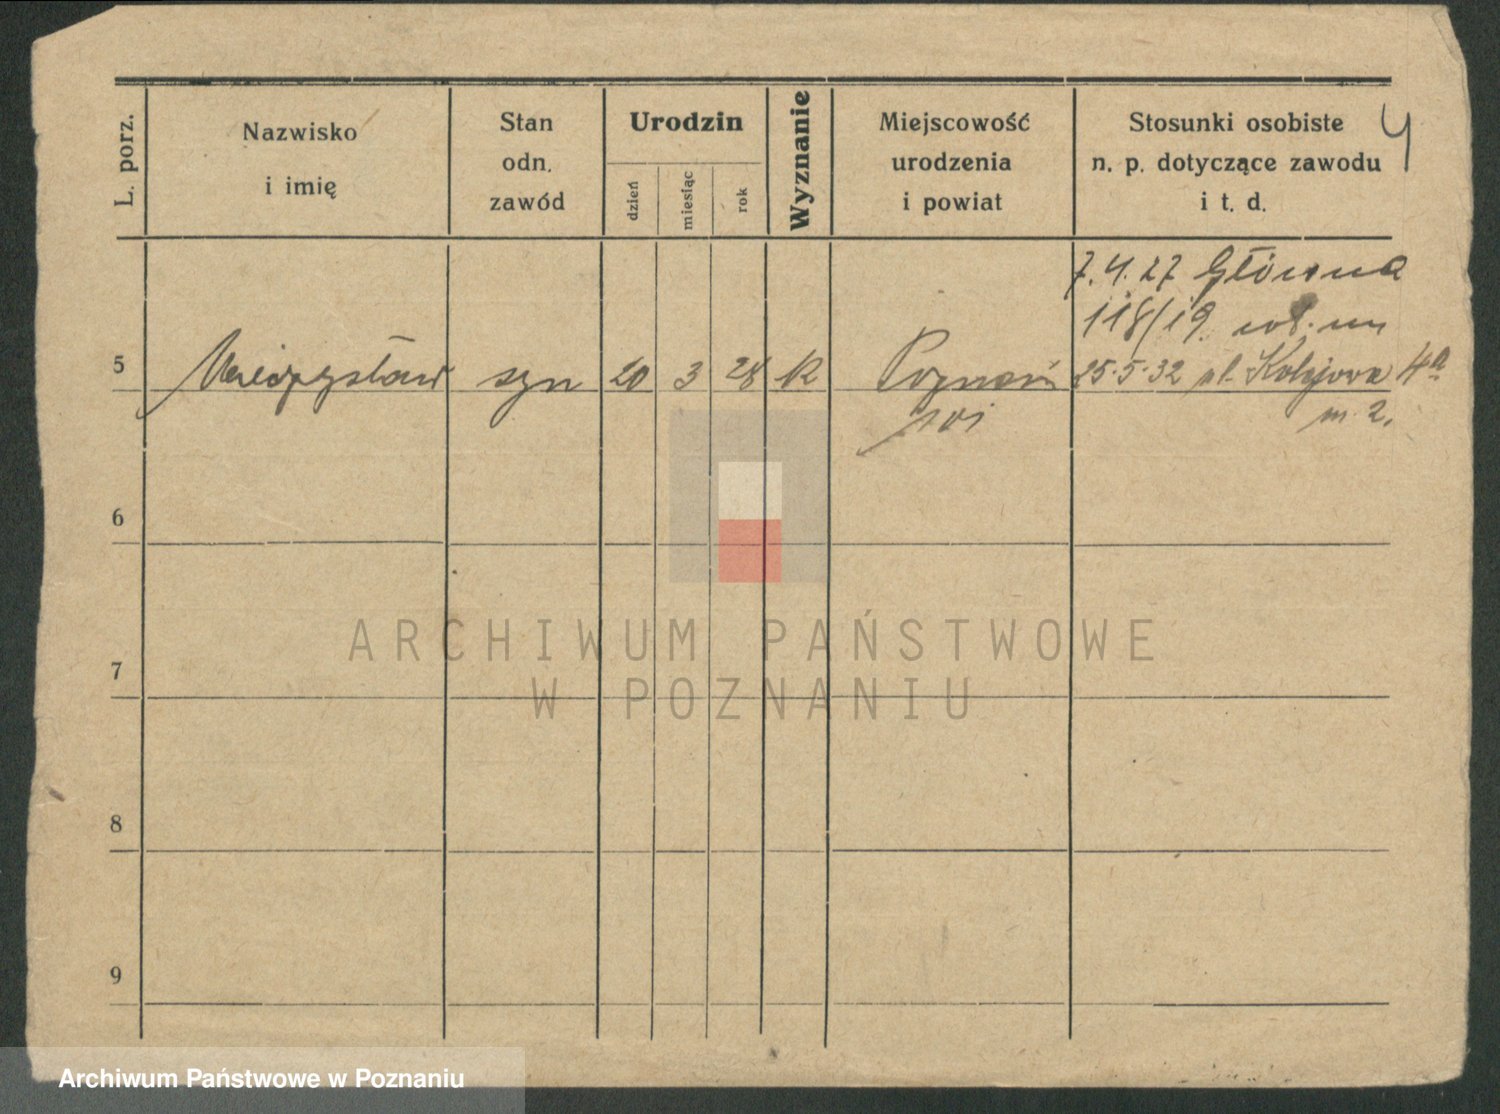 L. porz.
Nazwisko
i imię
Stan
odn.
zawód
Urodzin
dzień
miesiąc
rok
Wyznanie
Miejscowość
urodzenia
i powiat
Stosunki osobiste
n. p. dotyczące zawodu
i t. d.
4
7.4.27 Główna
118/19
5 Mieczysław syn 20 3 28 k Poznań 25.5.32 pl. Kolejowa 4a
m 2.
6
7
8
9
ARCHIWUM PAŃSTWOWE
W POZNANIU
Archiwum Państwowe w Poznaniu